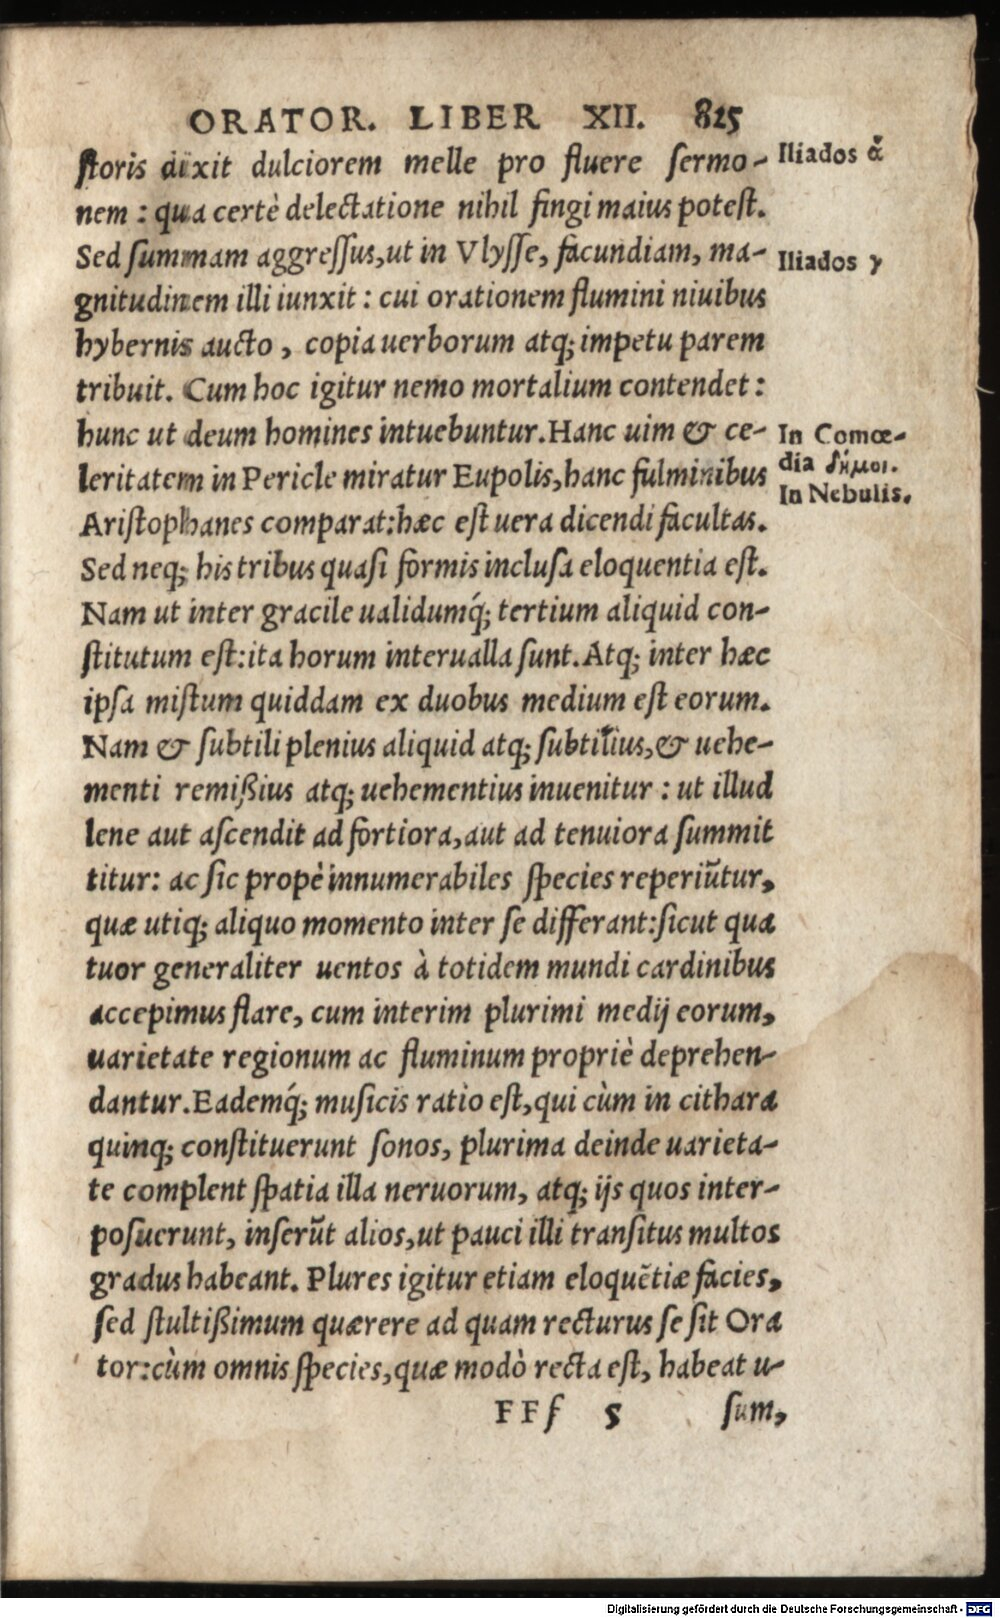 ORATOR. LIBER XII. 825
storis dixit dulciorem melle pro fluere sermo- Iliados ἄ
nem: qua certè delectatione nihil fingi maius potest.
Sed summam aggressus, ut in Vlysse, facundiam, ma- Iliados γ
gnitudinem illi iunxit: cui orationem flumini niuibus
hybernis aucto, copia uerborum atq; impetu parem
tribuit. Cum hoc igitur nemo mortalium contendet:
hunc ut deum homines intuebuntur. Hanc uim & ce- In Comœ-
leritatem in Pericle miratur Eupolis, hanc fulminibus dia δήμοι.
Aristophanes comparat: hæc est uera dicendi facultas. In Nebulis.
Sed neq; his tribus quasi formis inclusa eloquentia est.
Nam ut inter gracile ualidumq́; tertium aliquid con-
stitutum est: ita horum interualla sunt. Atq; inter hæc
ipsa mistum quiddam ex duobus medium est eorum.
Nam & subtili plenius aliquid atq; subtilius, & uehe-
menti remißius atq; uehementius inuenitur: ut illud
lene aut ascendit ad fortiora, aut ad tenuiora summit
titur: ac sic propè innumerabiles species reperiũtur,
quæ utiq; aliquo momento inter se differant: sicut qua
tuor generaliter uentos à totidem mundi cardinibus
accepimus flare, cum interim plurimi medij eorum,
uarietate regionum ac fluminum propriè deprehen-
dantur. Eademq́; musicis ratio est, qui cùm in cithara
quinq; constituerunt sonos, plurima deinde uarieta-
te complent spatia illa neruorum, atq; ijs quos inter-
posuerunt, inserũt alios, ut pauci illi transitus multos
gradus habeant. Plures igitur etiam eloquẽtiæ facies,
sed stultißimum quærere ad quam recturus se sit Ora
tor: cùm omnis species, quæ modò recta est, habeat u-
FFf 5 sum,
Digitalisierung gefördert durch die Deutsche Forschungsgemeinschaft - DFG